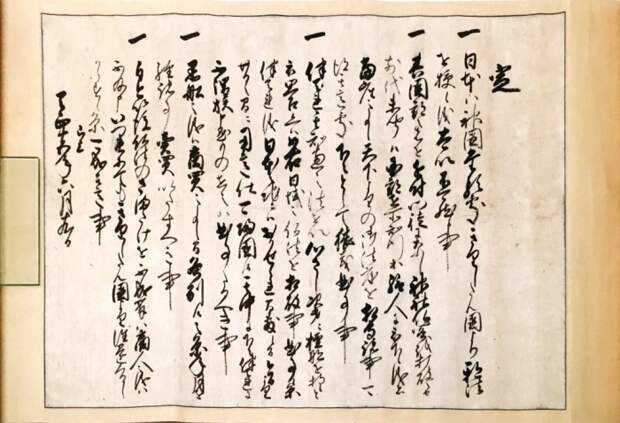 定
一 日本ハ神国たる処きりしたん国より邪法
を授候儀太以不可然候事
一 其国郡之者を近付門徒になし神社仏閣を打破之
由前代未聞候国郡在所知行等給人に被下候儀ハ
当座之事候天下よりの御法度を相守諸事可
得其意処下々として猥義曲事事
一 伴天連其知恵之法を以心さし次第ニ檀那を持候
と被思召候へハ如右日域之仏法を相破事曲事候条
伴天連儀日本之地ニハおかせられ間敷候間今日より
廿日之間ニ用意仕可帰国候其中に下々伴天連
に不謂族申懸もの在之ハ曲事たるへき事
一 黒船之儀ハ商買之事候間各別候之条年月を
経諸事売買いたすへき事
一 自今以後仏法のさまたけを不成輩ハ商人之儀ハ
不及申いつれにてもきりしたん国より往還くるし
からす候条可成其意事
已上
天正十五年六月十九日